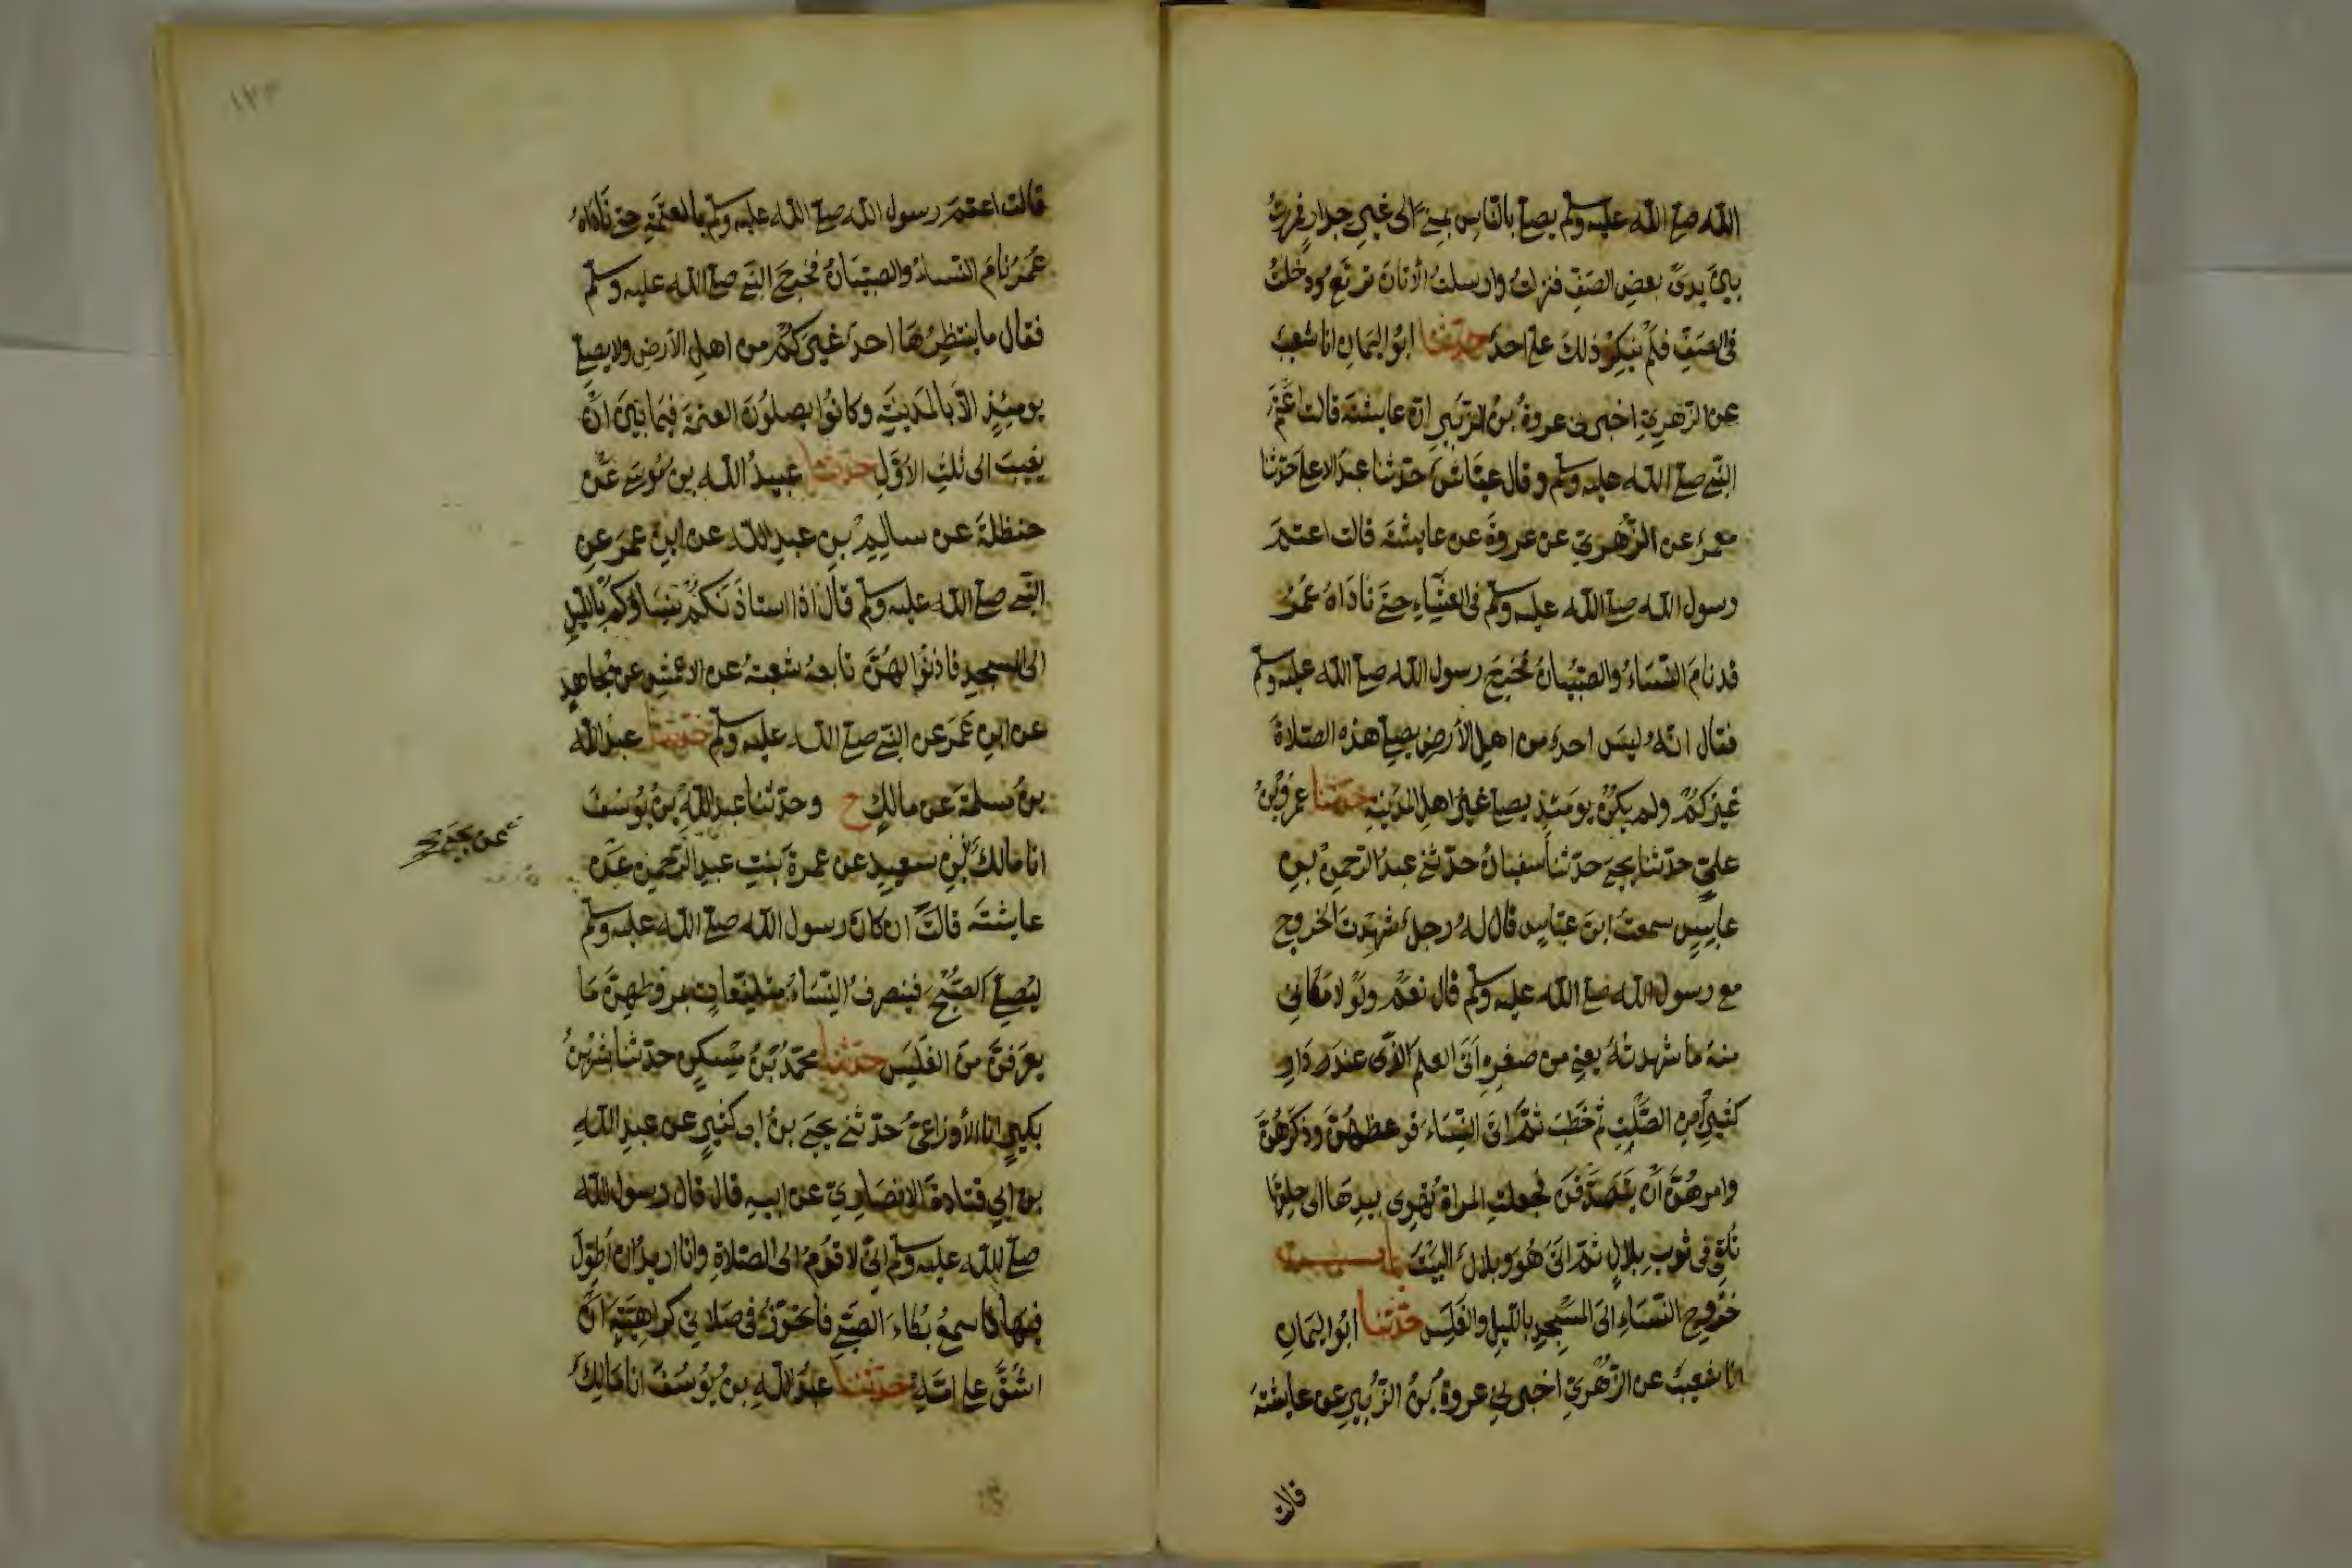 الله صلى الله عليه وسلم يصلي بالناس بمنى الى غير جدار فمررت
بين يدي بعض الصف فنزلت وارسلت الأتان ترتع ودخلت
في الصف فلم ينكر ذلك على احد حدثنا ابو اليمان انا شعيب
عن الزهري اخبرني عروة بن الزبير ان عايشة قالت اعتم
النبي صلى الله عليه وسلم وقال عياش حدثنا عبد الاعلى حدثنا
معمر عن الزهري عن عروة عن عايشة قالت اعتم
رسول الله صلى الله عليه وسلم في العشاء حتى ناداه عمر
قد نام النساء والصبيان فخرج رسول الله صلى الله عليه وسلم
فقال انه ليس احد من اهل الأرض يصلي هذه الصلاة
غيركم ولم يكن يومئذ يصلي غير اهل المدينة حدثنا عمرو بن
علي حدثنا يحيى حدثنا سفيان حدثني عبد الرحمن بن
عابس سمعت ابن عباس قال له رجل شهدت الخروج
مع رسول الله صلى الله عليه وسلم قال نعم ولولا مكاني
منه ما شهدته يعني من صغره اتى العلم الذي عند دار
كثير بن الصلت ثم خطب ثم اتى النساء فوعظهن وذكرهن
وامرهن أن يتصدقن فجعلت المراة تهوي بيدها الى حلقها
تلقي في ثوب بلال ثم اتى هو وبلال البيت باب
خروج النساء الى المسجد بالليل والغلس حدثنا ابو اليمان
انا شعيب عن الزهري اخبرني عروة بن الزبير عن عايشة
قالت
١٣٣
قالت اعتم رسول الله صلى الله عليه وسلم بالعتمة حتى ناداه
عمر نام النساء والصبيان فخرج النبي صلى الله عليه وسلم
فقال ما ينتظرها احد غيركم من اهل الأرض ولا يصلى
يومئذ الا بالمدينة وكانوا يصلون العتمة فيما بين ان
يغيب الى ثلث الاول حدثنا عبيد الله بن موسى عن
حنظلة عن سالم بن عبد الله عن ابن عمر عن
النبي صلى الله عليه وسلم قال اذا استاذنكم نساؤكم بالليل
الى المسجد فاذنوا لهن تابعه شعبة عن الاعمش عن مجاهد
عن ابن عمر عن النبي صلى الله عليه وسلم حدثنا عبد الله
بن مسلمة عن مالك ح وحدثنا عبد الله بن يوسف
انا مالك بن سعيد عن عمرة بنت عبد الرحمن عن
عن يحيى
عايشة قالت ان كان رسول الله صلى الله عليه وسلم
ليصلي الصبح فينصرف النساء متلفعات بمروطهن ما
يعرفن من الغلس حدثنا محمد بن مسكين حدثنا بشر بن
بكير انا الأوزاعي حدثني يحيى بن ابي كثير عن عبد الله
بن ابي قتادة الانصاري عن ابيه قال قال رسول الله
صلى الله عليه وسلم اني لاقوم الى الصلاة وانا اريد ان أطول
فيها فاسمع بكاء الصبي فاتجوز في صلاتي كراهية ان
اشق على امه حدثنا عبد الله بن يوسف انا مالك